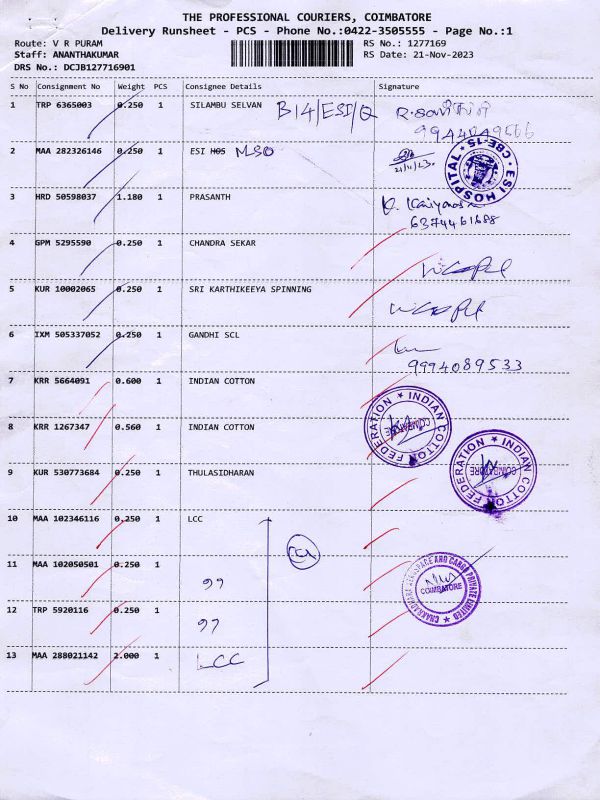 THE PROFESSIONAL COURIERS, COIMBATORE
Delivery Runsheet - PCS - Phone No.:0422-3505555 - Page No.:1
Route: V R PURAM RS No.: 1277169
Staff: ANANTHAKUMAR RS Date: 21-Nov-2023
DRS No.: DCJB127716901
S No Consignment No Weight PCS Consignee Details Signature
1 TRP 6365003 0.250 1 SILAMBU SELVAN B14/ESI/Q
2 MAA 282326146 0.250 1 ESI HOS MSO
21/11/23
ESI HOSPITAL ★ CBE-15 ★
3 HRD 50598037 1.180 1 PRASANTH
6374461688
4 GPM 5295590 0.250 1 CHANDRA SEKAR
5 KUR 10002065 0.250 1 SRI KARTHIKEEYA SPINNING
6 IXM 505337052 0.250 1 GANDHI SCL
9994089533
7 KRR 5664091 0.600 1 INDIAN COTTON
INDIAN COTTON FEDERATION ★
COIMBATORE
8 KRR 1267347 0.560 1 INDIAN COTTON
INDIAN COTTON FEDERATION ★
COIMBATORE
9 KUR 530773684 0.250 1 THULASIDHARAN
10 MAA 102346116 0.250 1 LCC
11 MAA 102050501 0.250 1 ,,
CHAKRADHARA AEROSPACE AND CARGO PRIVATE LIMITED ★
COIMBATORE
12 TRP 5920116 0.250 1 ,,
13 MAA 288021142 2.000 1 LCC